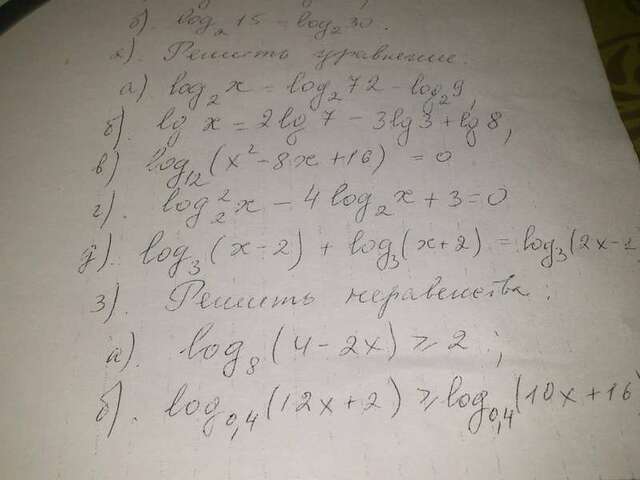 б). log₂ 15 - log₂ 30.
2). Решить уравнение:
а) log₂ x = log₂ 72 - log₂ 9,
б). lg x = 2 lg 7 - 3 lg 3 + lg 8,
в) log₁₂ (x² - 8x + 16) = 0
г). log₂² x - 4 log₂ x + 3 = 0
д). log₃ (x - 2) + log₃ (x + 2) = log₃ (2x - 1
3). Решить неравенства:
а). log₈ (4 - 2x) ⩾ 2;
б). log₀,₄ (12x + 2) ⩾ log₀,₄ (10x + 16)